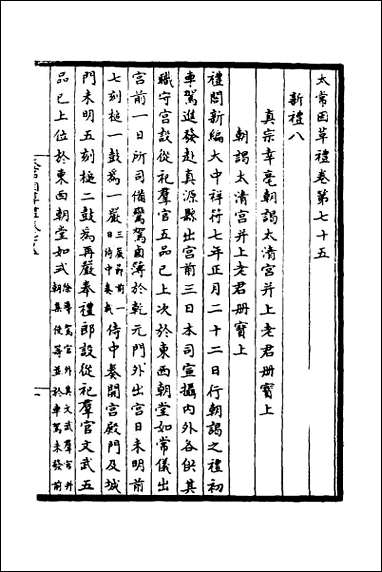 太常因革禮卷第七十五
新禮八
真宗幸亳朝謁太清宮并上老君册寳上
朝謁太清宮并上老君册寳上
禮閣新編大中祥符七年正月二十二日行朝謁之禮初
車駕進發赴真源縣出宮前三日本司宣攝内外各供其
職守宮設從祀羣官五品已上次於東西朝堂如常儀出
宮前一日所司備鑾駕鹵簿於乾元門外出宮日未明前
七刻槌一鼓爲一嚴三嚴節前一日侍中奏裁侍中奏開宮殿門及城
門未明五刻槌二鼓爲再嚴奉禮郎設從祀羣官文武五
品已上位於東西朝堂如式除導駕官外其文武羣官并朝集使等並於車駕未發前